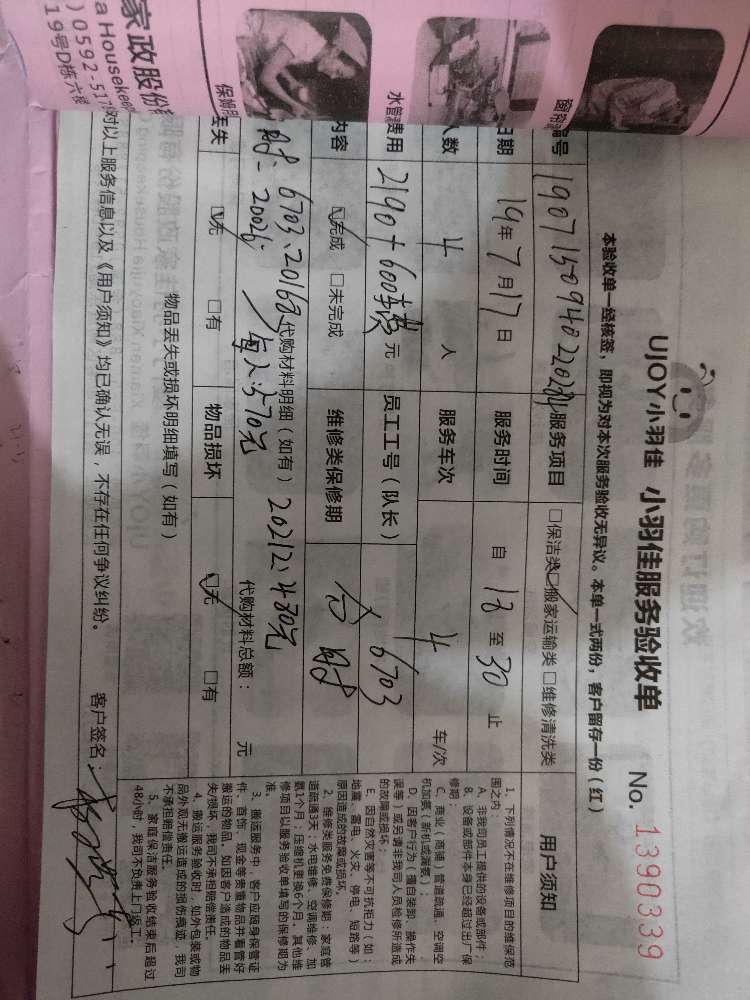 UJOY小羽佳 小羽佳服务验收单 No. 1390339
本验收单一经核签，即视为对本次服务验收无异议。本单一式两份，客户留存一份（红）
编号 服务项目 □保洁类 ☑搬家运输类 □维修清洗类
日期 19年7月17日 服务时间 自 18 至 30 止
人数 4 人 服务车次 4 车/次
费用 2190+600 元 员工工号（队长） 6703
内容 ☑完成 □未完成 维修类保修期
代购材料明细（如有） 代购材料总额： 元
6703、20168 20212：430元
20026 每人：570元
丢失 ☑无 □有 物品损坏 ☑无 □有
物品丢失或损坏明细填写（如有）
对以上服务信息以及《用户须知》均已确认无误，不存在任何争议纠纷。 客户签名：
用户须知
1、下列情况不在维修项目的维保范
围之内：
A、非我司员工提供的设备或部件；
B、设备或部件本身已经超过出厂保
修期；
C、商业（商铺）管道疏通、空调空
机加氨（新机或漏氨）；
D、因客户行为（擅自装卸、操作失
误等）或另请非我司人员检修所造成
的故障或损坏；
E、因自然灾害等不可抗拒力（如：
地震、雷电、火灾、停电、短路等）
原因造成的故障或损坏。
2、维修类服务免费保修期：家庭管
道疏通3天；水电维修、空调维修、加
氨1个月；压缩机更换6个月，其他维
修项目以服务验收单填写的保修期为
准。
3、搬运服务中，客户应随身保管证
件、首饰、现金等贵重物品并看管好
搬运的物品，如因客户造成的物品丢
失/损坏，我司不承担赔偿责任。
4、搬运服务验收时，如外包装或物
品外观无搬运造成的损伤痕迹，我司
不承担赔偿责任。
5、家庭保洁服务验收结束后超过
48小时，我司不负责上门返工。
家政股份
a Housekee
) 0592-517
19号D栋六楼
保姆
水管
窗帘